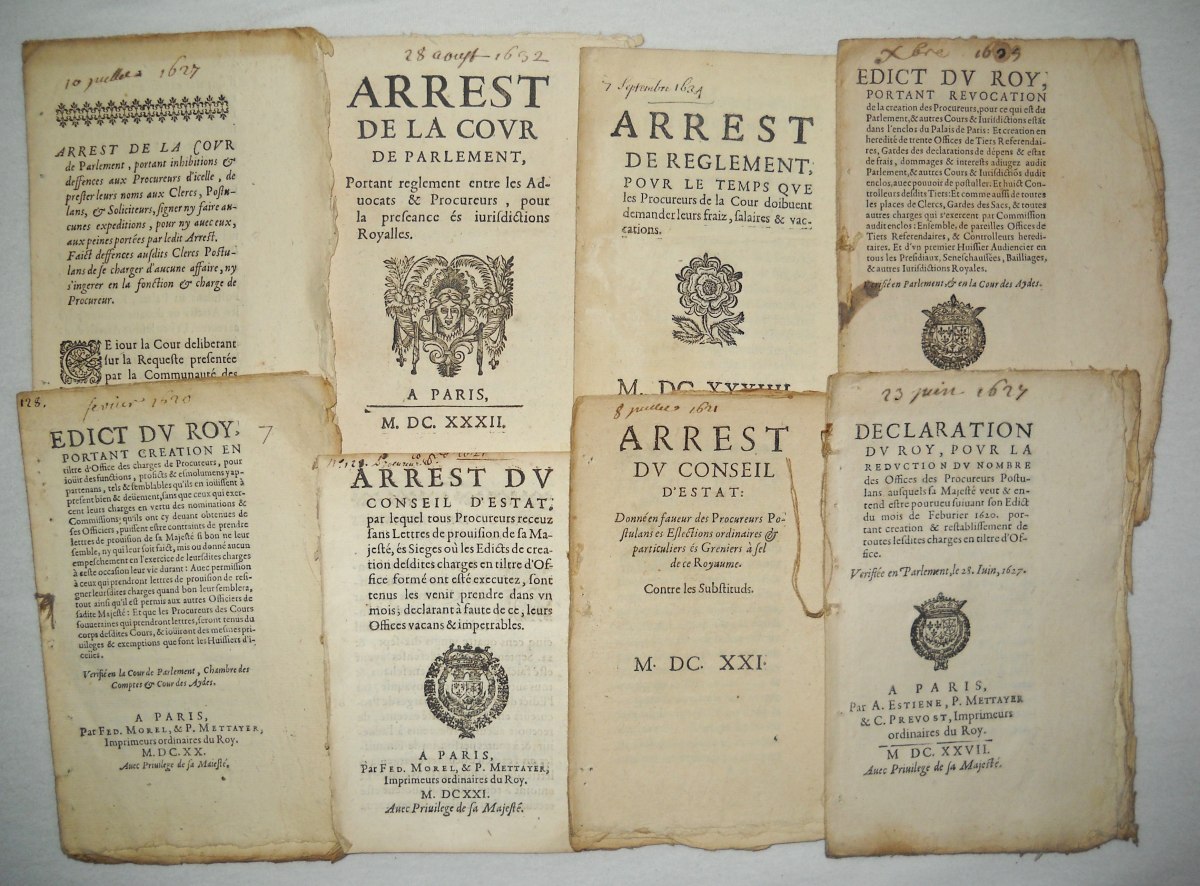 10 juillet 1627
ARREST DE LA COVR
de Parlement, portant inhibitions &
deffences aux Procureurs d'icelle, de
prester leurs noms aux Clercs, Postu-
lans, & Soliciteurs, signer ny faire au-
cunes expeditions, pour ny auec eux,
aux peines portées par ledit Arrest.
Faict deffences ausdits Clercs Postu-
lans de se charger d'aucune affaire, ny
s'ingerer en la fonction & charge de
Procureur.
CE iour la Cour deliberant
sur la Requeste presentée
par la Communauté des
28 aoust 1632
ARREST
DE LA COVR
DE PARLEMENT,
Portant reglement entre les Ad-
uocats & Procureurs, pour
la preseance és iurisdictions
Royalles.
A PARIS,
M. DC. XXXII.
7 Septembre 1634
ARREST
DE REGLEMENT,
POVR LE TEMPS QVE
les Procureurs de la Cour doibuent
demander leurs fraiz, salaires & vac-
cations.
M. DC. XXXIIII.
Xbre
EDICT DV ROY,
PORTANT REVOCATION
de la creation des Procureurs, pour ce qui est du
Parlement, & autres Cours & Iurisdictions estãt
dans l'enclos du Palais de Paris: Et creation en
heredité de trente Offices de Tiers Referendai-
res, Gardes des declarations de dépens & estat
de frais, dommages & interests adiugez audit
Parlement, & autres Cours & Iurisdictiõs dudit
enclos, auec pouuoir de postuller: Et huict Con-
trolleurs desdits Tiers: Et comme aussi de toutes
les places de Clercs, Gardes des Sacs, & toutes
autres charges qui s'exercent par Commission
audit enclos: Ensemble, de pareilles Offices de
Tiers Referendaires, & Controlleurs heredi-
taires. Et d'vn premier Huissier Audiencier en
tous les Presidiaux, Seneschaussées, Bailliages,
& autres Iurisdictions Royales.
Verifié en Parlement, & en la Cour des Aydes.
128.
feurier 1620
EDICT DV ROY, 7
PORTANT CREATION EN
tiltre d'Office des charges de Procureurs, pour
iouir des functions, profficts & esmolumens y ap-
partenans, tels & semblables qu'ils en iouissent à
present bien & deüement, sans que ceux qui exer-
cent leurs charges en vertu des nominations &
Commissions qu'ils ont cy deuant obtenues de
ses Officiers, puissent estre contraints de prendre
lettres de prouision de sa Majesté si bon ne leur
semble, ny qu'il leur soit faict, mis ou donné aucun
empeschement en l'exercice de leursdites charges
à ceste occasion leur vie durant: Auec permission
à ceux qui prendront lettres de prouision de resi-
gner leursdites charges quand bon leur semblera,
tout ainsi qu'il est permis aux autres Officiers de
sadite Majesté: Et que les Procureurs des Cours
souueraines qui prendront lettres, seront tenus du
corps desdites Cours, & iouiront des mesmes pri-
uileges & exemptions que font les Huissiers d'i-
celles.
Verifié en la Cour de Parlement, Chambre des
Comptes & Cour des Aydes.
A PARIS,
Par FED. MOREL, & P. METTAYER,
Imprimeurs ordinaires du Roy.
M. DC. XX.
Auec Priuilege de sa Maiesté.
N° 128.
ARREST DV
CONSEIL D'ESTAT,
par lequel tous Procureurs receuz
sans Lettres de prouision de sa Ma-
jesté, és Sieges où les Edicts de crea-
tion desdites charges en tiltre d'Of-
fice formé ont esté executez, sont
tenus les venir prendre dans vn
mois; declarant à faute de ce, leurs
Offices vacans & impetrables.
A PARIS,
Par FED. MOREL, & P. METTAYER,
Imprimeurs ordinaires du Roy.
M. DCXXI.
Auec Priuilege de sa Majesté.
8 juillet 1621
ARREST
DV CONSEIL
D'ESTAT:
Donné en faueur des Procureurs Po-
stulans és Eslections ordinaires &
particuliers és Greniers à sel
de ce Royaume.
Contre les Substituds.
M. DC. XXI.
23 juin 1627
DECLARATION
DV ROY, POVR LA
REDVCTION DV NOMBRE
des Offices des Procureurs Postu-
lans ausquels sa Majesté veut & en-
tend estre pourueu suiuant son Edict
du mois de Feburier 1620. por-
tant creation & restablissement de
toutes lesdites charges en tiltre d'Of-
fice.
Verifiée en Parlement, le 28. Iuin, 1627.
A PARIS,
Par A. ESTIENE, P. METTAYER
& C. PREVOST, Imprimeurs
ordinaires du Roy.
M DC. XXVII.
Auec Priuilege de sa Majesté.